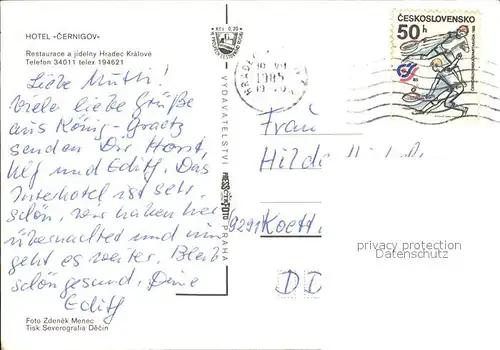 HOTEL »ČERNIGOV«
Restaurace a jídelny Hradec Králové
Telefon 34011 telex 194621
Liebe Mutti!
viele liebe Grüße
aus König-Graetz
senden Dir Horst,
Ulf und Edith. Das
Interhotel ist sehr
schön, wir haben hier
übernachtet und nun
geht es weiter. Bleib
schön gesund. Deine
Edith
Foto Zdeněk Menec
Tisk Severografia Děčín
Kčs 0,20
VYDAVATELSTVÍ
PRESSFOTO
PRAHA
HRADEC
1985
ČESKOSLOVENSKO
50 h
Frau
Hilde
9291 Koett
DD
privacy protection
Datenschutz